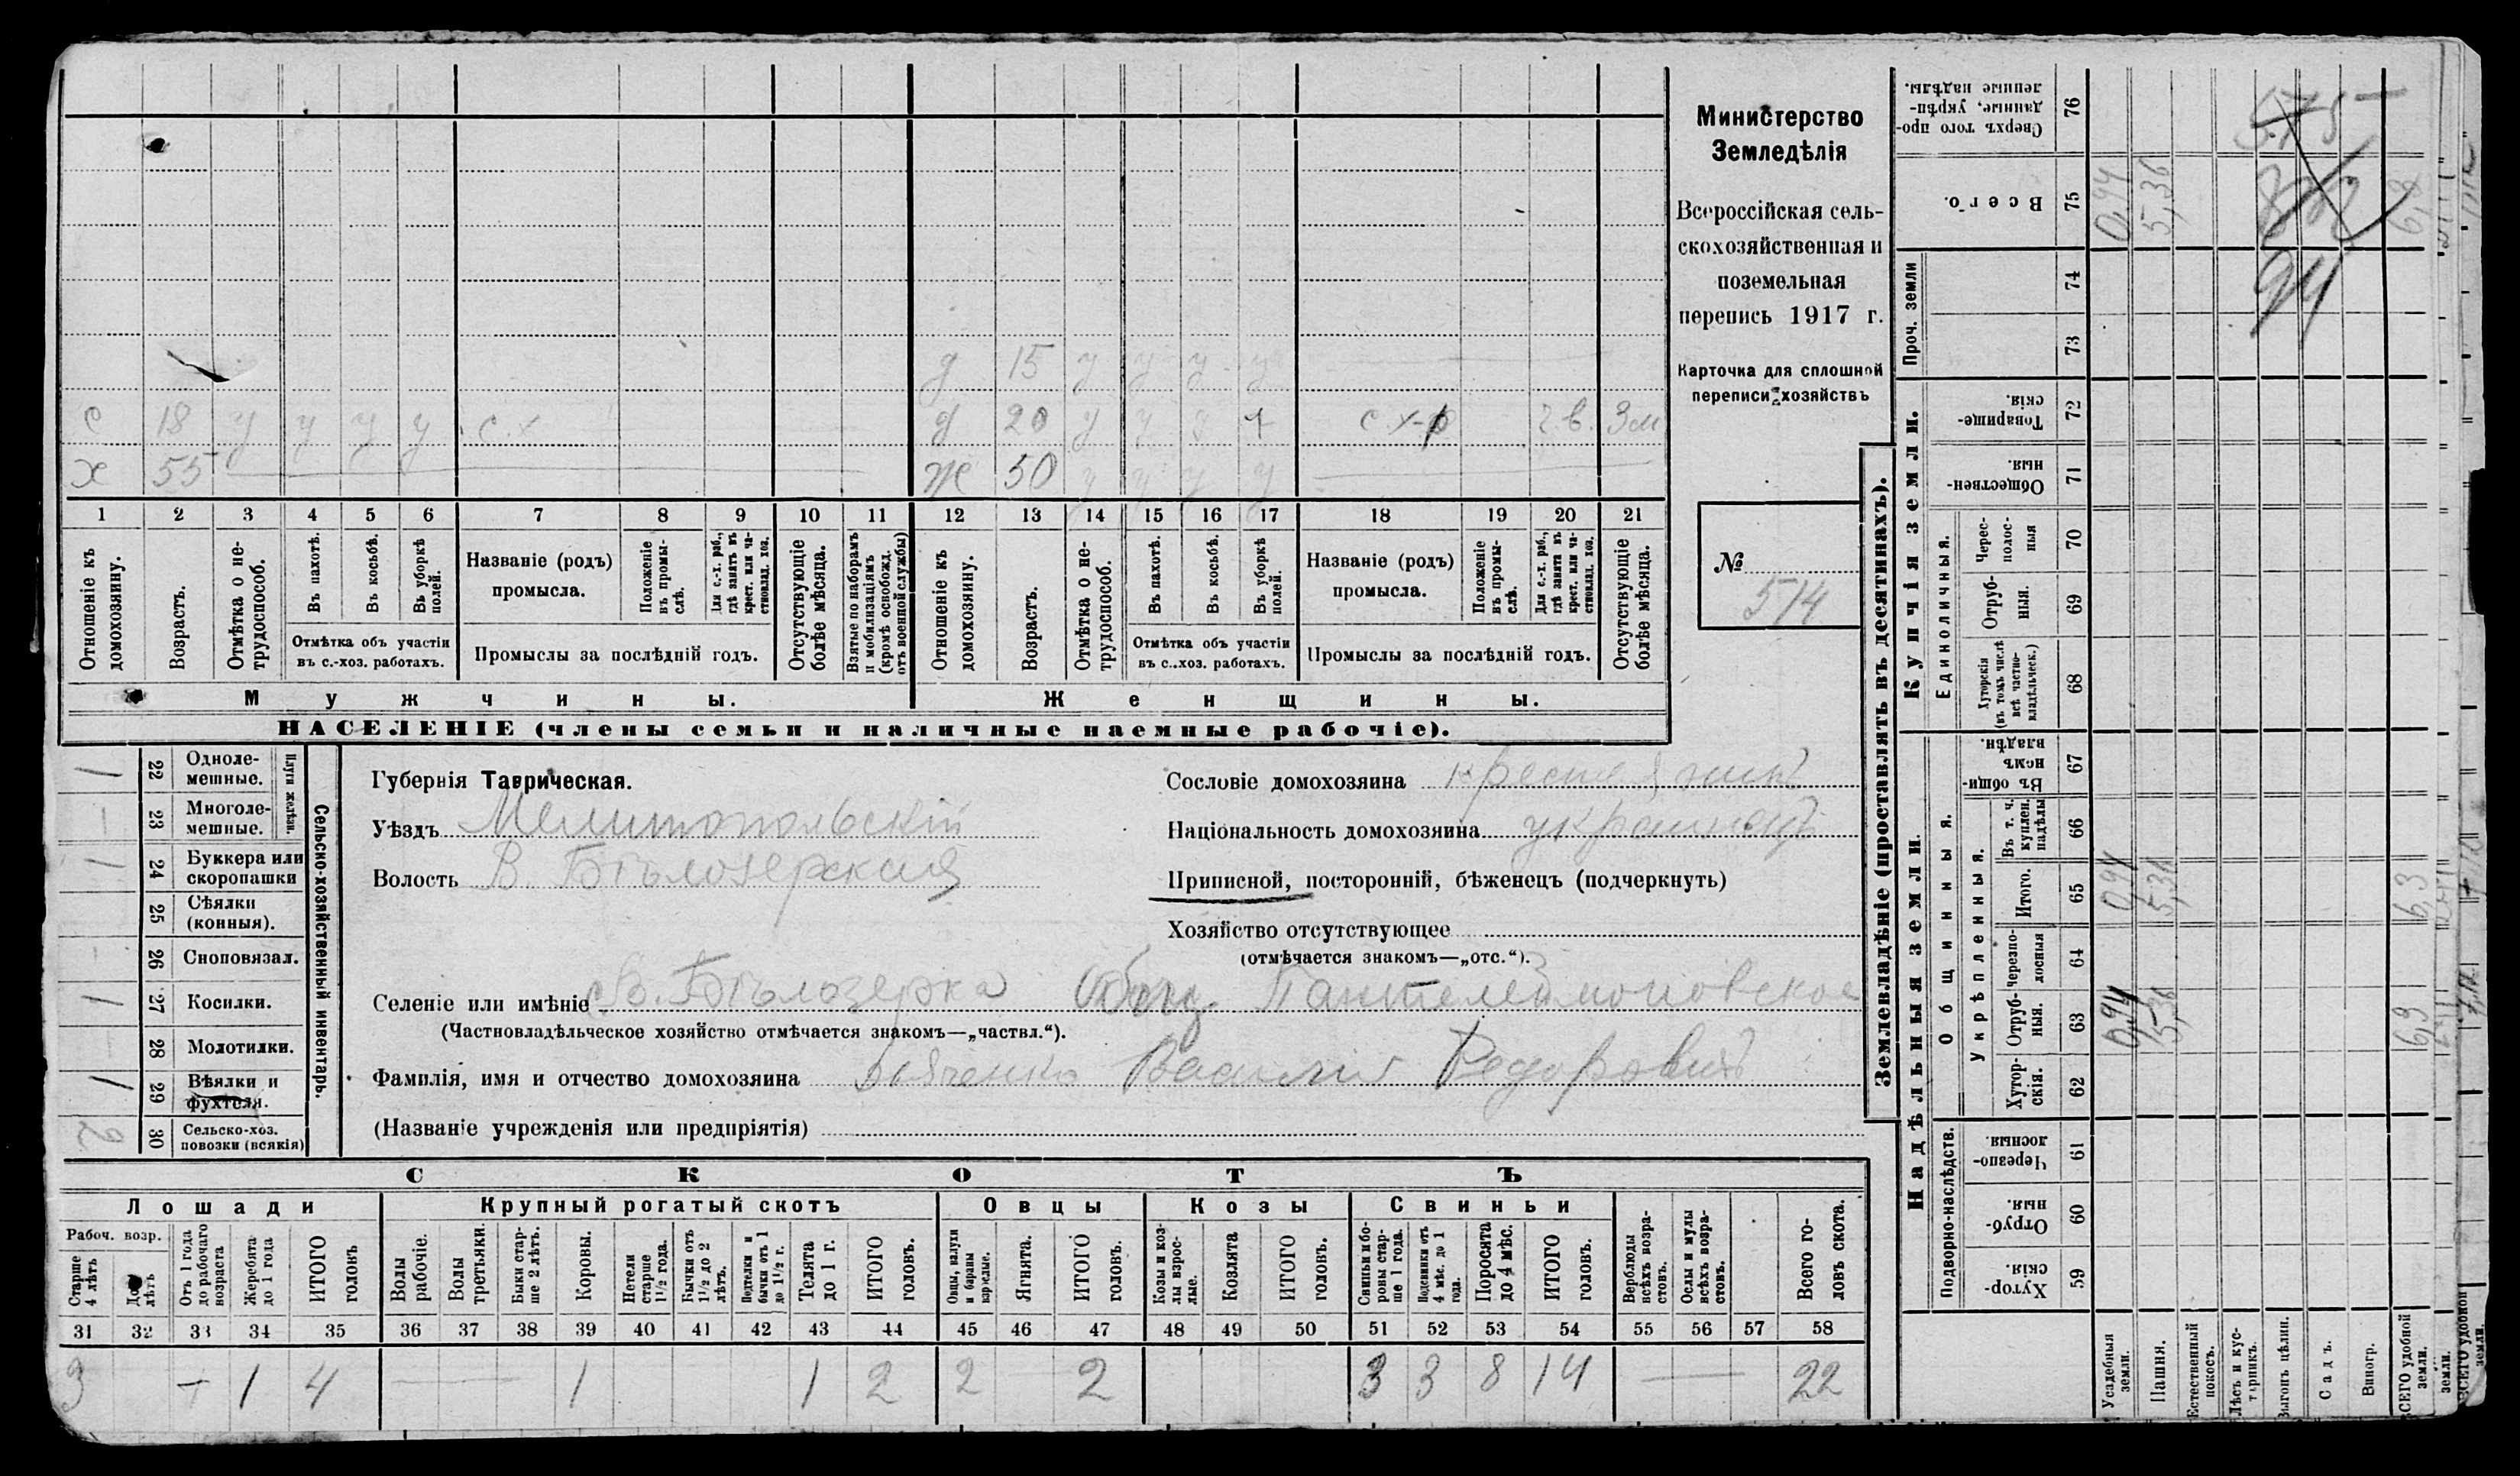 д 15 у у у у
с 18 у у у у с.х д 20 у с х-р 3м
х 55 ж 50 у у у у
1 2 3 4 5 6 7 8 9 10 11 12 13 14 15 16 17 18 19 20 21
Отношеніе къ домохозяину.
Возрастъ.
Отмѣтка о не-трудоспособ.
Въ пахотѣ.
Въ косьбѣ.
Въ уборкѣ полей.
Отмѣтка объ участіи
въ с.-хоз. работахъ.
Названіе (родъ)
промысла.
Положеніе въ промы-слѣ.
Для с.-х. раб., гдѣ занятъ въ крест. или ча-стновлад. хоз.
Промыслы за послѣдній годъ.
Отсутствующіе болѣе мѣсяца.
Взятые по наборамъ и мобилизаціямъ (кромѣ освобожд. отъ военной службы)
Отношеніе къ домохозяину.
Возрастъ.
Отмѣтка о не-трудоспособ.
Въ пахотѣ.
Въ косьбѣ.
Въ уборкѣ полей.
Отмѣтка объ участіи
въ с..хоз. работахъ.
Названіе (родъ)
промысла.
Положеніе въ промы-слѣ.
Для с.-х. раб., гдѣ занята въ крест. или ча-стновлад. хоз.
Промыслы за послѣдній годъ.
Отсутствующіе болѣе мѣсяца.
Мужчины. Женщины.
НАСЕЛЕНІЕ (члены семьи и наличные наемные рабочіе).
Министерство
Земледѣлія
Всероссійская сель-
скохозяйственная и
поземельная
перепись 1917 г.
Карточка для сплошной
переписи хозяйствъ
№
514
Сельско-хозяйственный инвентарь.
Плуги желѣзн.
1 22 Одноле-мешные.
23 Многоле-мешные.
1 24 Буккера или скоропашки
25 Сѣялки (конныя).
26 Сноповязал.
1 27 Косилки.
28 Молотилки.
1 29 Вѣялки и фухтеля.
2 30 Сельско-хоз. повозки (всякія)
Губернія Таврическая.
Уѣздъ Мелитопольскій
Волость В. Бѣлозерская
Сословіе домохозяина крестьянинъ
Національность домохозяина украинецъ
Приписной, посторонній, бѣженецъ (подчеркнуть)
Хозяйство отсутствующее
(отмѣчается знакомъ—„отс.“).
Селеніе или имѣніе В. Бѣлозерка Общ. Пантелеймоновское
(Частновладѣльческое хозяйство отмѣчается знакомъ—„частвл.“).
Фамилія, имя и отчество домохозяина Василій Федоровичъ
(Названіе учрежденія или предпріятія)
СКОТЪ
Лошади Крупный рогатый скотъ Овцы Козы Свиньи
Рабоч. возр.
Старше 4 лѣтъ
До лѣтъ
Отъ 1 года до рабочаго возраста
Жеребята до 1 года
ИТОГО головъ
Волы рабочіе.
Волы третьяки.
Быки стар-ше 2 лѣтъ.
Коровы.
Нетели старше 1½ года.
Бычки отъ 1½ до 2 лѣтъ.
Подтелки и бычки отъ 1 до 1½ г.
Телята до 1 г.
ИТОГО головъ.
Овцы, валухи и бараны взрослые.
Ягнята.
ИТОГО головъ.
Козы и коз-лы взрос-лые.
Козлята
ИТОГО головъ.
Свиньи и бо-ровы стар-ше 1 года.
Подсвинки отъ 4 мѣс. до 1 года.
Поросята до 4 мѣс.
ИТОГО головъ.
Верблюды всѣхъ возра-стовъ.
Ослы и мулы всѣхъ возра-стовъ.
Всего го-ловъ скота.
31 32 33 34 35 36 37 38 39 40 41 42 43 44 45 46 47 48 49 50 51 52 53 54 55 56 57 58
3 1 4 1 1 2 2 2 3 3 8 14 22
Землевладѣніе (проставлять въ десятинахъ).
Сверхъ того про-данные, укрѣп-ленные надѣлы. 76
Всего. 75 0,94 5,36 6,3
Проч. земли 74 73
94
Купчія земли.
Товарище-скія. 72
Обществен-ныя. 71
Единоличныя.
Черес-полос-ныя 70
Отруб-ныя. 69
Хуторскія (въ томъ числѣ всѣ частно-владѣльческ.) 68
Надѣльныя земли.
Общинныя.
Въ общи-номъ владѣн. 67
Укрѣпленныя.
Въ т. ч. куплен. надѣлы 66
Итого. 65 0,94 5,36 6,3
черезпо-лосныя 64
Отруб-ныя. 63 0,94 5,36 6,3
Хутор-скія. 62
Подворно-наслѣдств.
Черезпо-лосныя. 61
Отруб-ныя. 60
Хутор-скія. 59
Усадебныя земли.
Пашня.
Естественный покосъ.
Лѣсъ и кус-тарникъ.
Выгонъ цѣлин.
Садъ.
Виногр.
ВСЕГО удобной земли.
земли.
ВСЕГО удобной земли.